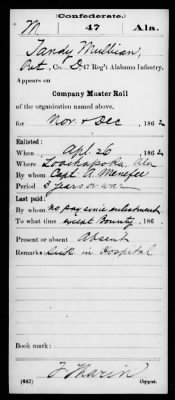 (Confederate.)
M 47 Ala.
Tandy Mullian,
Pvt, Co. D 47 Reg't Alabama Infantry.
Appears on
Company Muster Roll
of the organization named above,
for Nov & Dec, 1862
Enlisted:
When Apl. 26, 1862
Where Loachapoka, Ala
By whom Capt. A. Menefee
Period 3 years or war
Last paid:
By whom no pay since enlistment
To what time except Bounty, 186
Present or absent Absent
Remarks: Sick in Hospital
Book mark:
(642) Copyist.